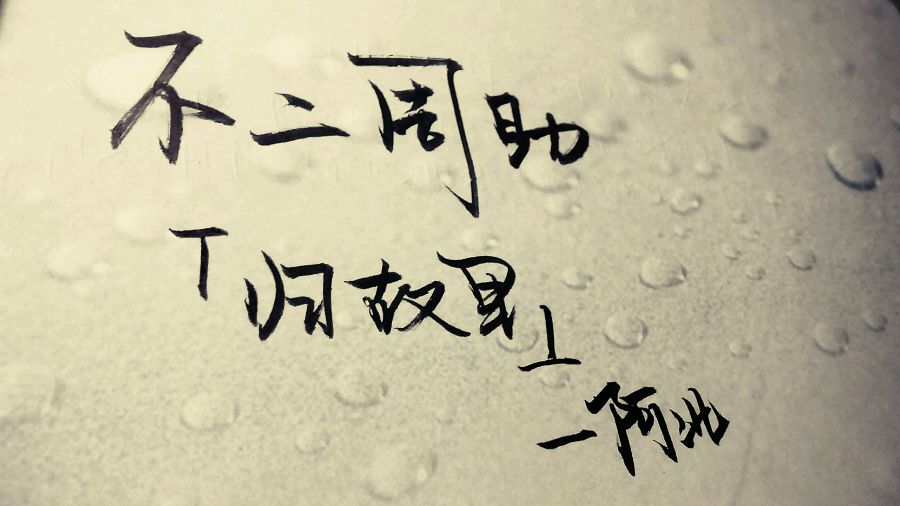 不二周助
「归故里」
—阿北